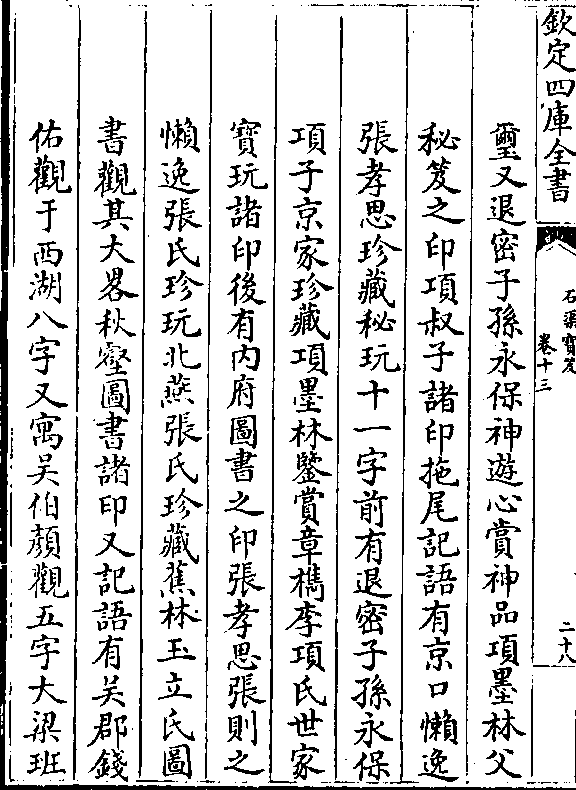 欽定四庫全書
石渠寶笈
卷十三
二十八
璽又退密子孫永保神遊心賞神品項墨林父
秘笈之印項叔子諸印拖尾記語有京口懶逸
張孝思珍藏秘玩十一字前有退密子孫永保
項子京家珍藏項墨林鑒賞章檇李項氏世家
寳玩諸印後有内府圖書之印張孝思張則之
懶逸張氏珍玩北燕張氏珍藏蕉林玉立氏圖
書觀其大畧秋壑圖書諸印又記語有吴郡錢
佑觀于西湖八字又寓吴伯顔觀五字大梁班